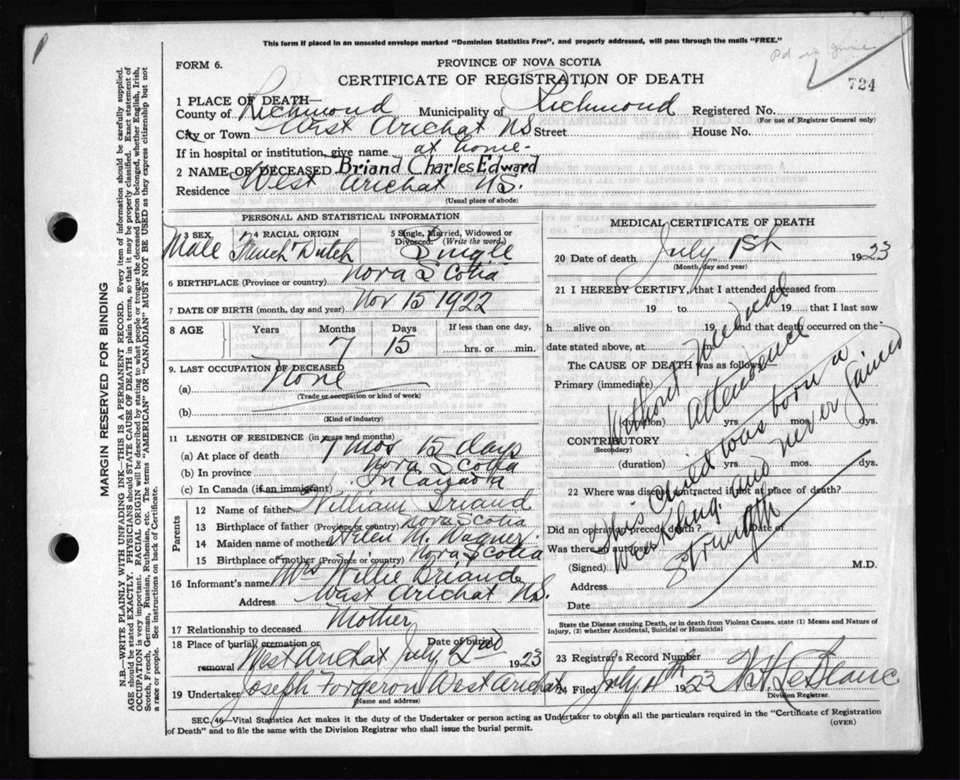 This form if placed in an unsealed envelope marked "Dominion Statistics Free", and properly addressed, will pass through the mails "FREE."
FORM 6.
PROVINCE OF NOVA SCOTIA
CERTIFICATE OF REGISTRATION OF DEATH
724
1 PLACE OF DEATH—
County of Richmond Municipality of Richmond Registered No.
(For use of Registrar General only)
City or Town West Arichat NS Street House No.
If in hospital or institution, give name at home-
2 NAME OF DECEASED Briand Charles Edward
Residence West Arichat NS.
(Usual place of abode)
MARGIN RESERVED FOR BINDING
N.B.—WRITE PLAINLY WITH UNFADING INK—THIS IS A PERMANENT RECORD. Every item of information should be carefully supplied.
AGE should be stated EXACTLY. PHYSICIANS should STATE CAUSE OF DEATH in plain terms, so that it may be properly classified. Exact statement of
OCCUPATION is very important. RACIAL ORIGIN will be described by stating to what people or tongue the deceased person belonged, whether English, Irish,
Scotch, French, German, Russian, Ruthenian, etc. The terms "AMERICAN" OR "CANADIAN" MUST NOT BE USED as they express citizenship but not
a race or people. See instructions on back of Certificate.
PERSONAL AND STATISTICAL INFORMATION
3 SEX
Male
4 RACIAL ORIGIN
French Dutch
5 Single, Married, Widowed or
Divorced. (Write the word)
Single
6 BIRTHPLACE (Province or country) Nova Scotia
7 DATE OF BIRTH (month, day and year) Nov 15 1922
8 AGE Years Months Days If less than one day
7 15 hrs. or min.
9. LAST OCCUPATION OF DECEASED
(a) None
(Trade or occupation or kind of work)
(b)
(Kind of industry)
11 LENGTH OF RESIDENCE (in years and months)
(a) At place of death 7 mos 15 days
(b) In province Nova Scotia
(c) In Canada (if an immigrant) In Canada
Parents
12 Name of father William Briand
13 Birthplace of father (Province or country) Nova Scotia
14 Maiden name of mother Helen M. Wagner
15 Birthplace of mother (Province or country) Nova Scotia
16 Informant's name Mrs Willie Briand
Address West Arichat NS.
17 Relationship to deceased Mother
18 Place of burial, cremation or Date of burial
removal West Arichat July 2nd 1923
19 Undertaker Joseph Forgeron West Arichat
(Name and address)
MEDICAL CERTIFICATE OF DEATH
20 Date of death July 1st 1923
(Month, day and year)
21 I HEREBY CERTIFY, that I attended deceased from
19 to 19 that I last saw
h alive on 19 and that death occurred on the
date stated above, at m.
The CAUSE OF DEATH was as follows:
Primary (immediate)
(duration) yrs. mos. dys.
CONTRIBUTORY
(Secondary)
(duration) yrs. mos. dys.
22 Where was disease contracted if not at place of death?
Did an operation precede death? Date of
Was there an autopsy?
(Signed) M.D.
Address
Date
Without Medical
attendence
This Child was born a
Weakling and never gained
strength
State the Disease causing Death, or in death from Violent Causes, state (1) Means and Nature of
Injury, (2) whether Accidental, Suicidal or Homicidal
23 Registrar's Record Number
24 Filed July 4th 1923 W.H. LeBlanc
Division Registrar.
SEC. 46—Vital Statistics Act makes it the duty of the Undertaker or person acting as Undertaker to obtain all the particulars required in the "Certificate of Registration
of Death" and to file the same with the Division Registrar who shall issue the burial permit. (OVER)